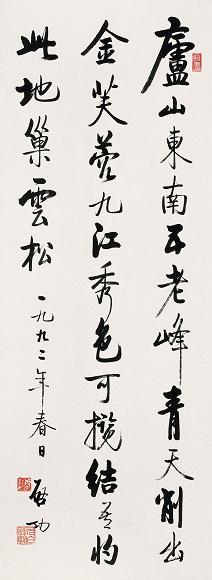 廬山東南五老峰青天削出
金芙蓉九江秀色可攬結吾將
此地巢雲松 一九九二年春日 啟功